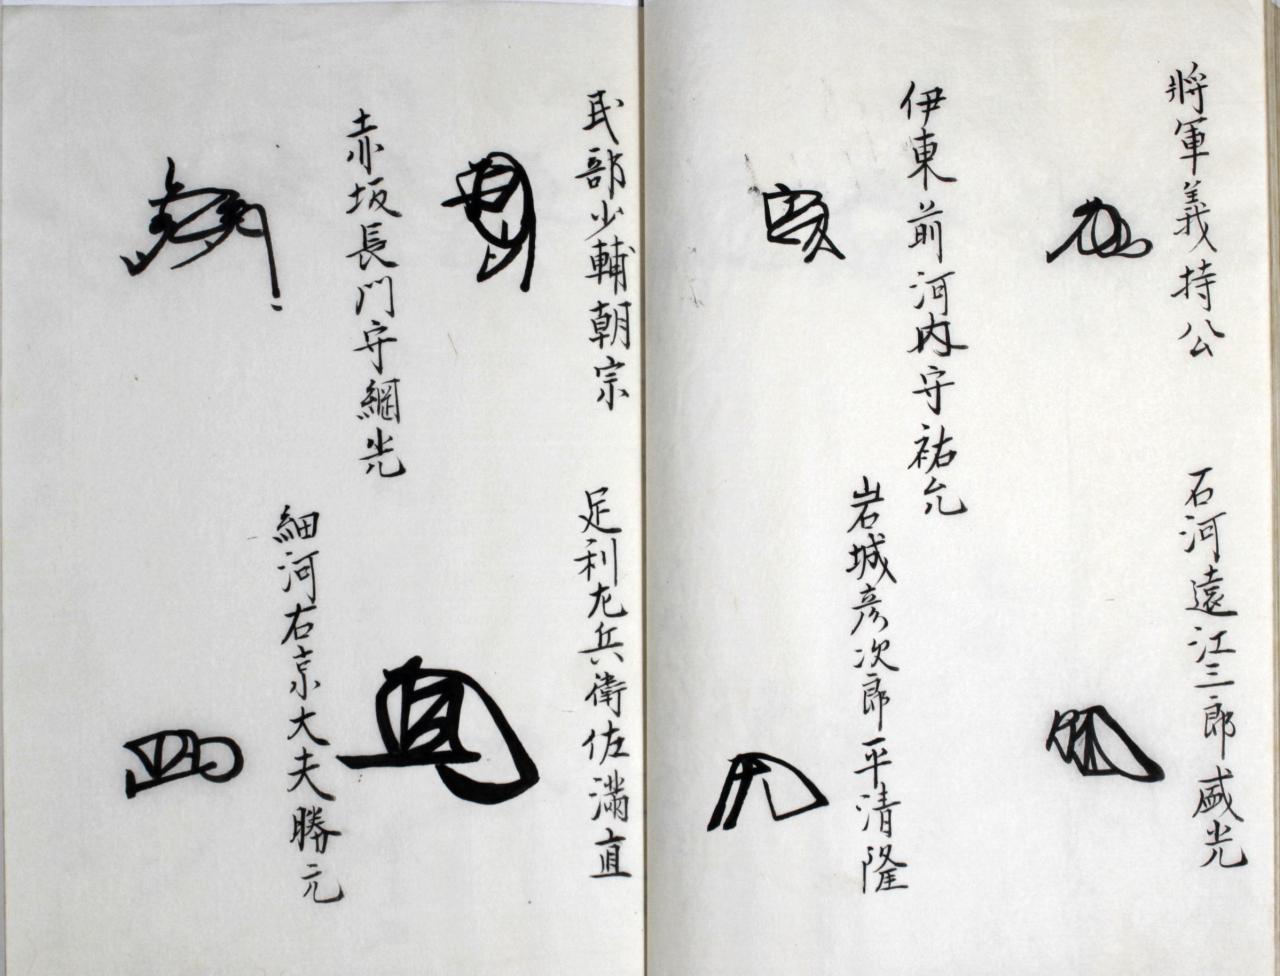 將軍義持公
石河遠江三郎盛光
伊東前河内守祐允
岩城彦次郎平清隆
民部少輔朝宗
足利左兵衛佐満直
赤坂長門守綱光
細河右京大夫勝元